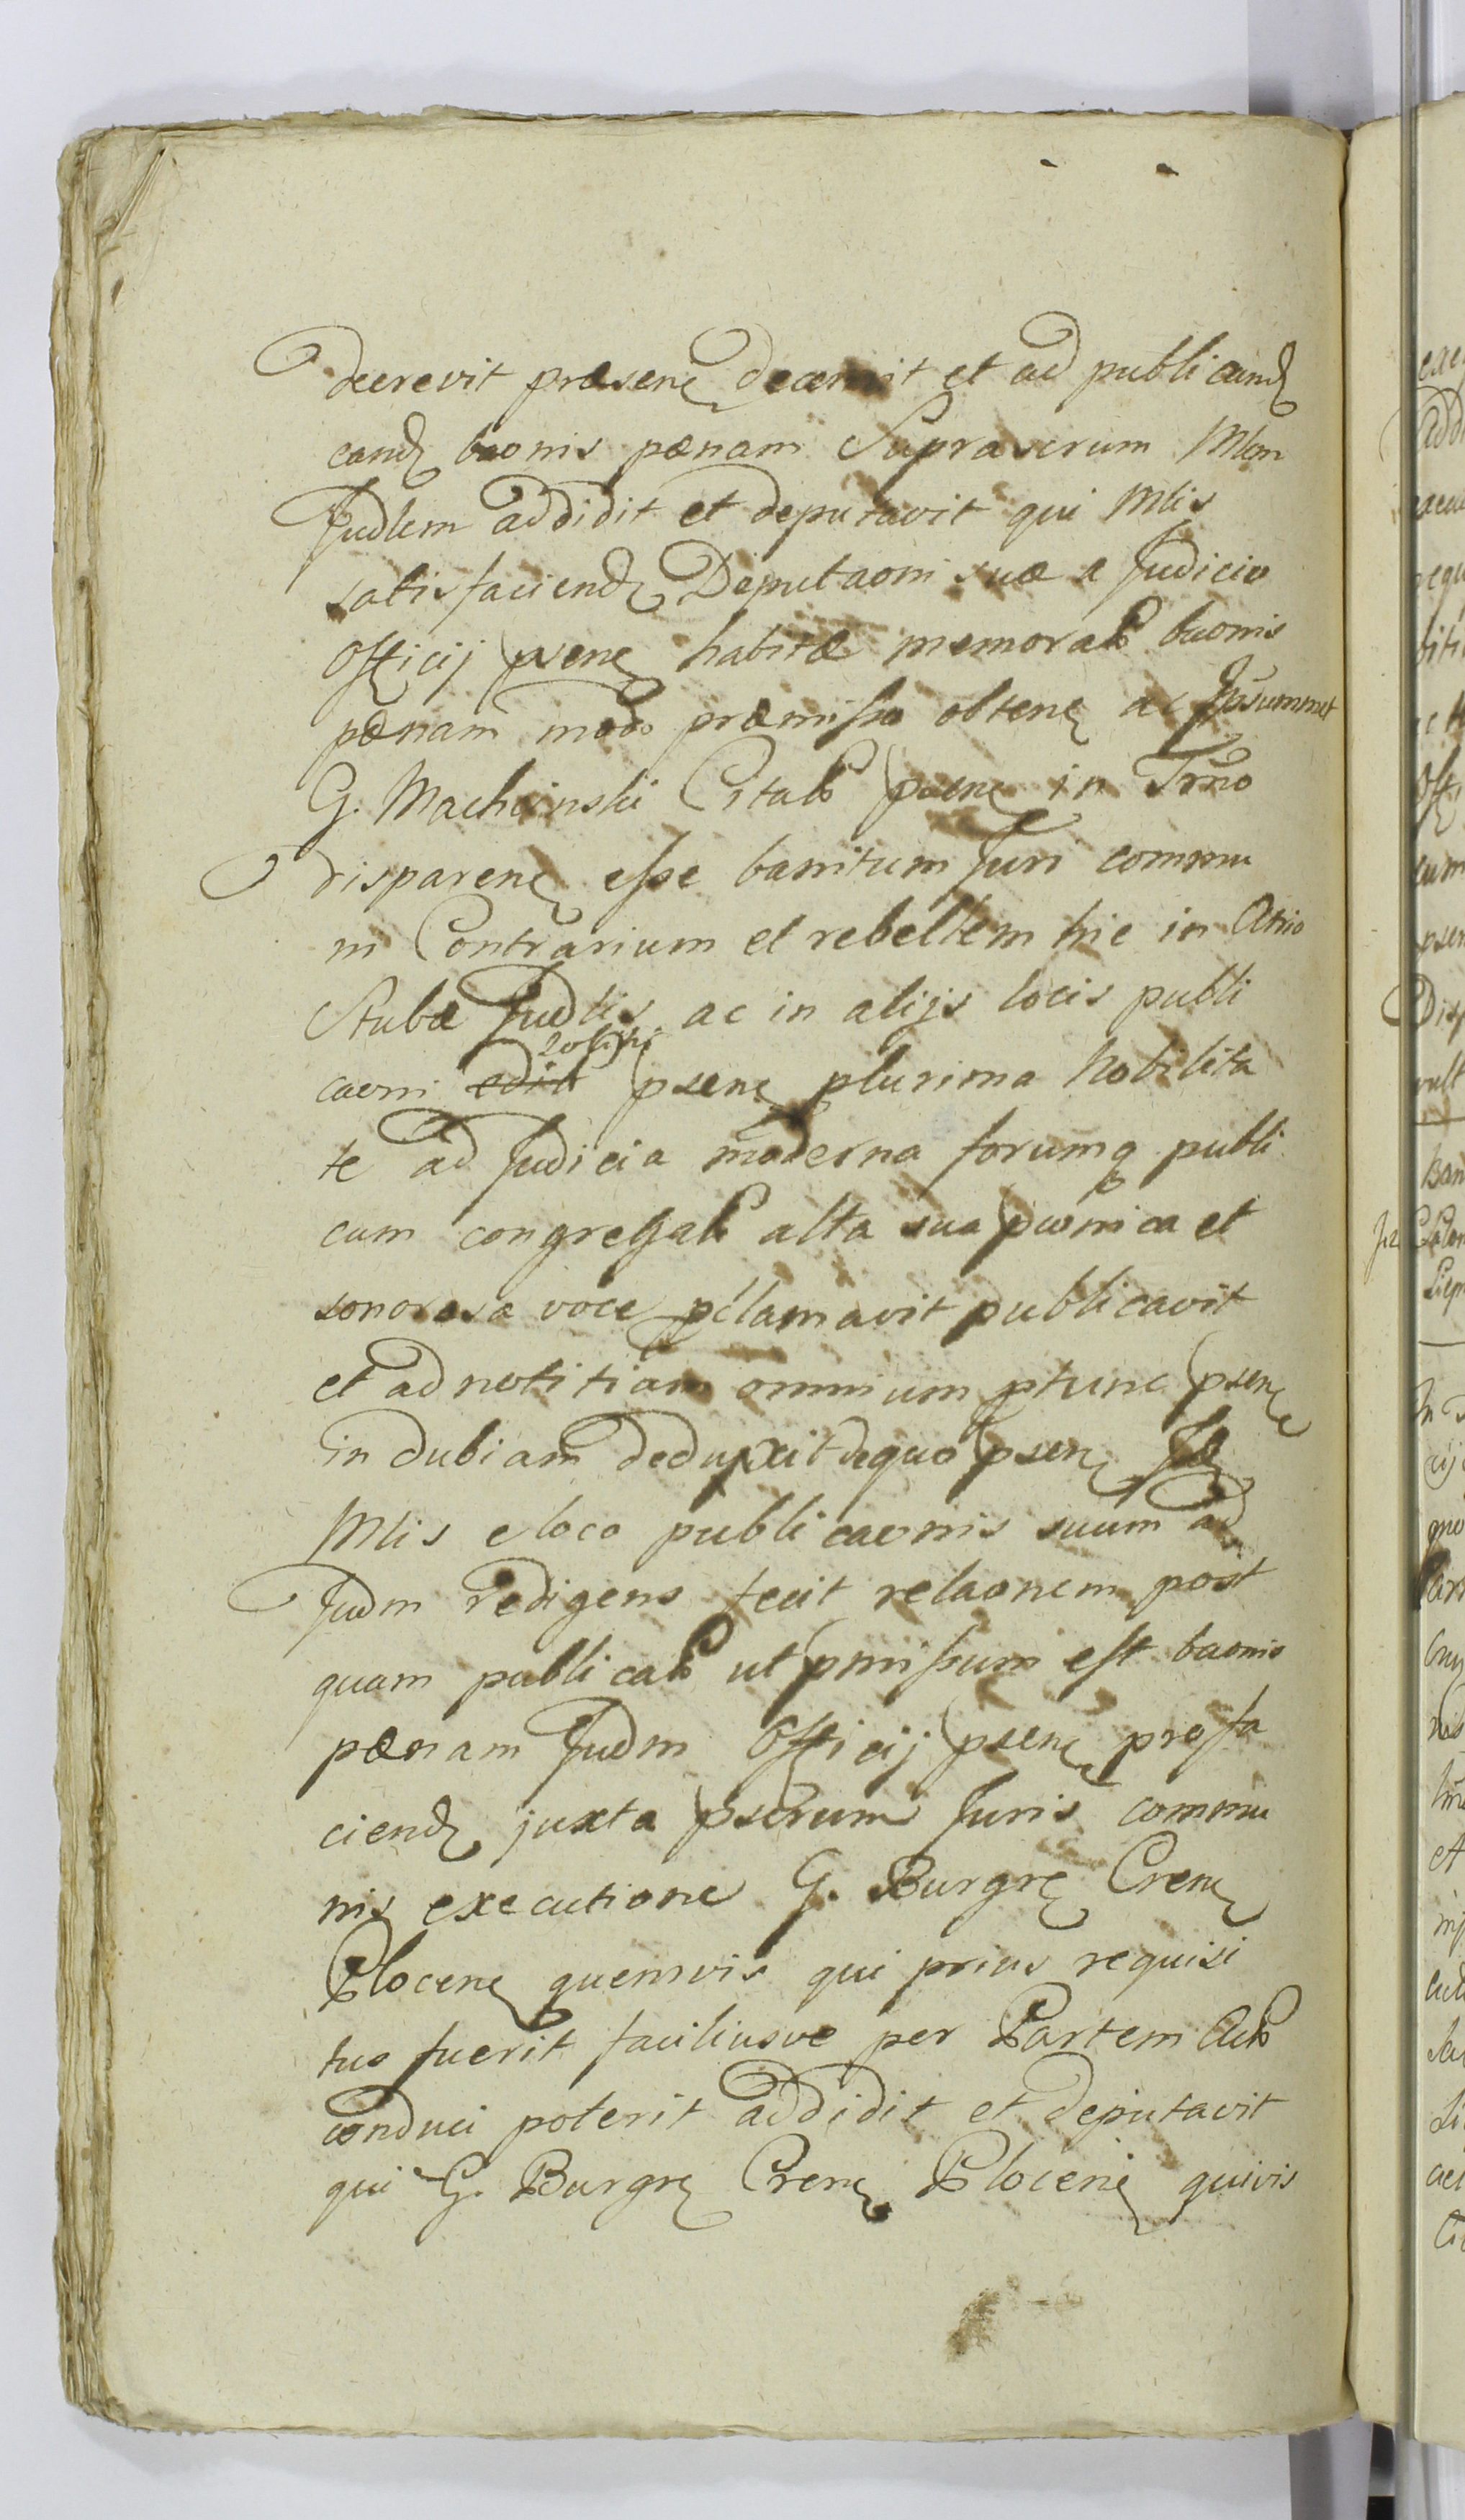 decrevit præsenę decernit et ad publicand
cand baonis pænam Suprascrum Mlem
Judlem addidit et deputavit qui Mlis
satisfaciend Deputaoni suæ a Judicio
Officij psenę habitæ memorat baonis
pænam modo præmisso obtenę ac Ipsummet
G. Machcinski Citat psenę in Trno
disparenę esse bannitum Juri commu
ni Contrarium et rebellem hic in Atrio
Stubæ Judlis ac in alijs locis publi
caoni psenę plurima Nobilita
te ad Judicia moderna forumq publi
cum congregat alta sua pconica et
sonorosa voce pclamavit publicavit
et ad notitiam omnium ptunc psenę
indubiam deduxit dequo psenę Idę
Mlis e loco publicaonis suum ad
Judm redigens fecit relaonem post
quam publicat ut pmissum est baonis
pænam Judm Officij psenę pro fa
ciend juxta pscrum Juris commu
nis executione G. Burgrę Crenę
Plocenę quemvis qui prius requisi
tus fuerit faciliusve per Partem Act
conduci poterit addidit et deputavit
qui G. Burgrę Crenę Plocenę quivis